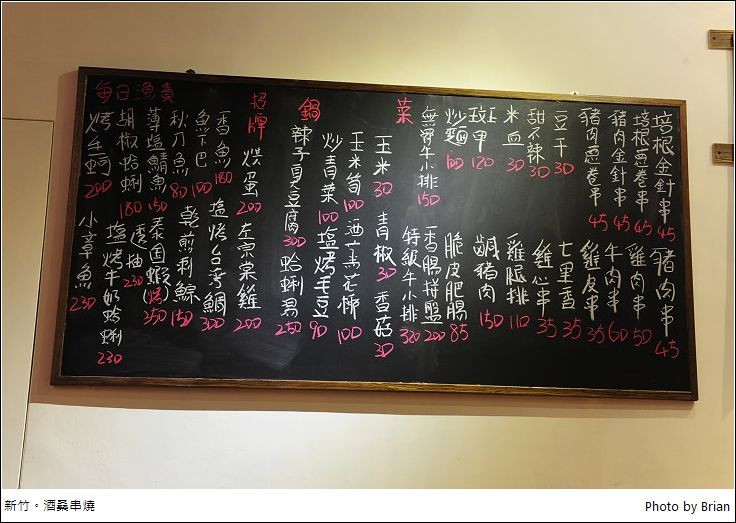 培根金針串 45
豬肉串 45
培根蔥卷串 45
雞肉串 50
豬肉金針串 45
牛肉串 60
豬肉蔥卷串 45
雞皮串 35
豆干 30
七里香 35
甜不辣 30
雞心串 35
米血 30
雞腿排 110
斑甲 120
鹹豬肉 150
炒麵 100
脆皮肥腸 85
無骨牛小排 150
香腸拼盤 200
特級牛小排 320
菜
玉米 30
青椒 30
香菇 30
玉米筍 100
花椰 100
炒青菜 100
塩烤毛豆 90
鍋
辣子臭豆腐 300
蛤蜊 250
招牌
烘蛋 200
左宗棠雞 200
香魚 180
塩烤台灣鯛 300
魚下巴 100
乾煎刺鯧 150
秋刀魚 80
薄塩鯖魚 150
泰国蝦(烤) 350
胡椒蛤蜊 180
透抽 230
塩烤牛奶蛤蜊 230
每日漁貨
烤生蚵 200
小章魚 230
新竹。酒鱻串燒
Photo by Brian